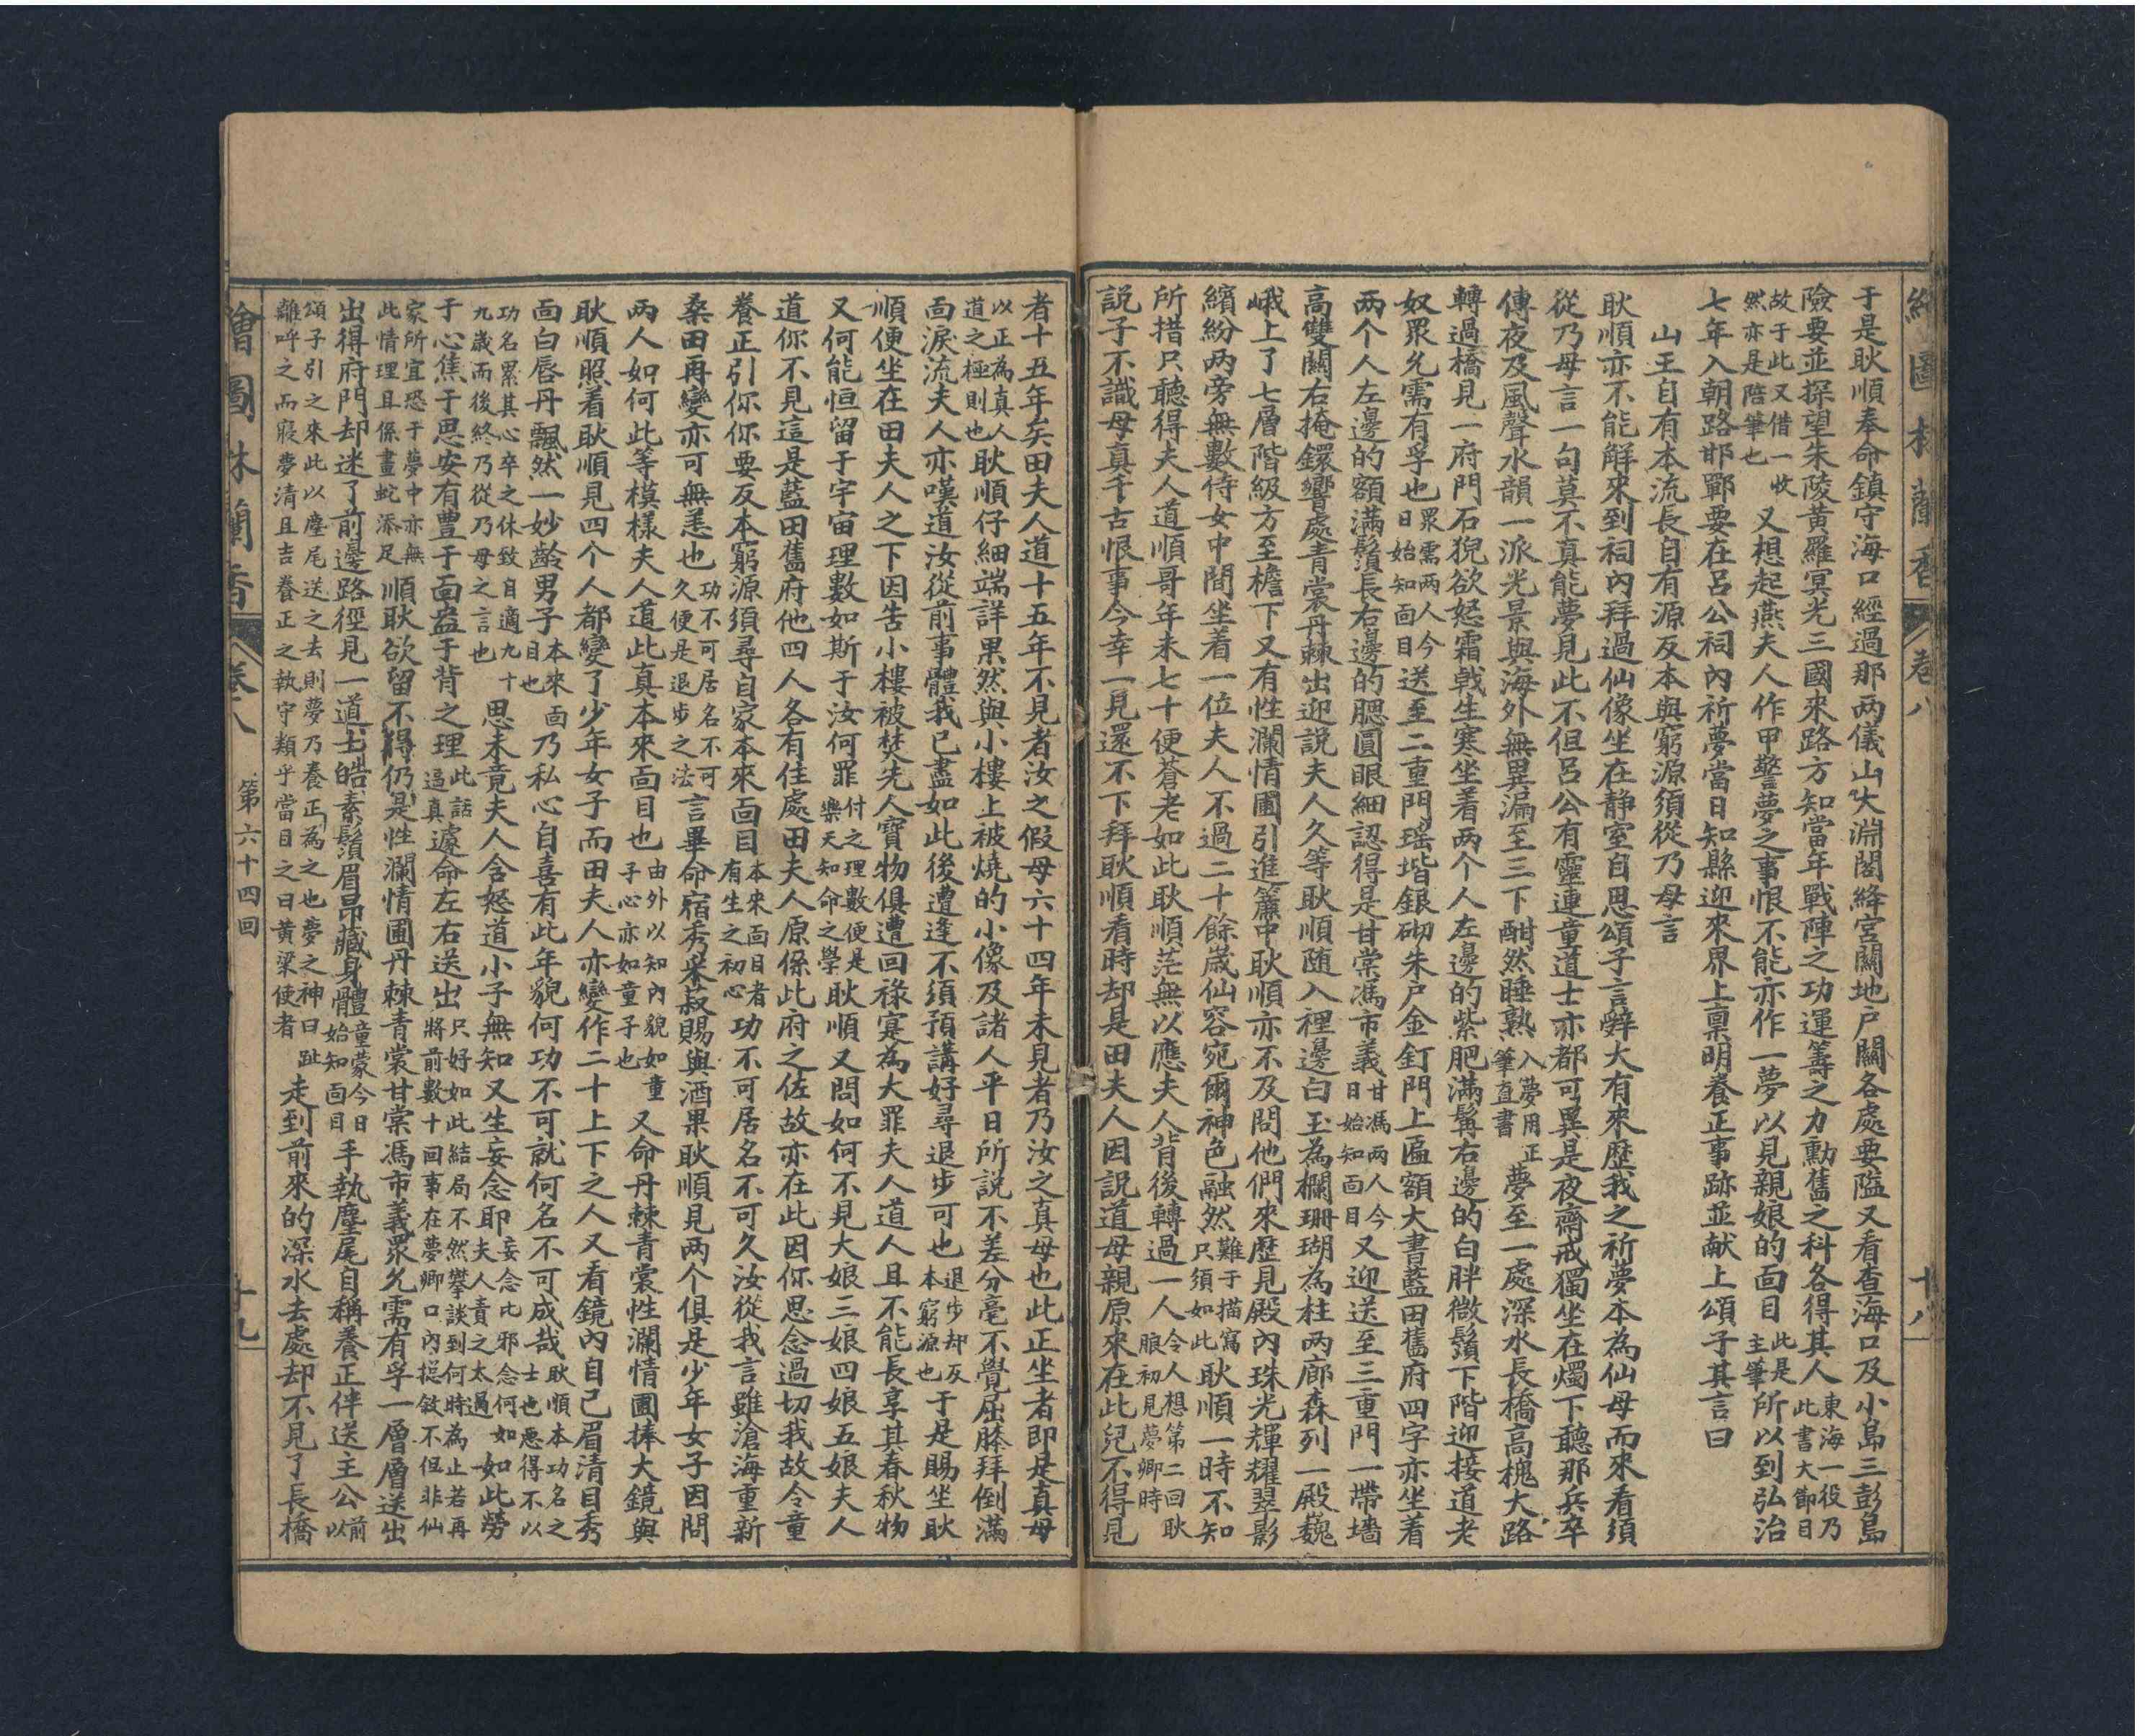 繪圖林蘭香 卷八 十八
于是耿順奉命鎮守海口經過那两儀山大淵閣絳宫關地户關各處要隘又看查海口及小島三彭島
險要並探望朱陵黄羅冥光三國來路方知當年戰陣之功運籌之力勳舊之科各得其人東海一役乃此書大節目
故于此又借一收然亦是陪筆也又想起燕夫人作甲警夢之事恨不能亦作一夢以見親娘的面目此是主筆所以到弘治
七年入朝路邯鄲要在呂公祠內祈夢當日知縣迎來界上稟明養正事跡並献上頌子其言曰
山王自有本流長自有源反本與窮源須從乃母言
耿順亦不能解來到祠內拜過仙像坐在静室自思頌子言辭大有來歷我之祈夢本為仙母而來看須
從乃母言一句莫不真能夢見此不但呂公有靈連童道士亦都可異是夜齋戒獨坐在燭下聽那兵卒
傳夜及風聲水韻一派光景與海外無異漏至三下酣然睡熟入夢用正筆直書夢至一處深水長橋高槐大路
轉過橋見一府門石猊欲怒霜戟生寒坐着两个人左邊的紫肥滿髯右邊的白胖微鬚下階迎接道老
奴眾允需有孚也眾需两人今日始知面目送至二重門瑶堦銀砌朱户金釘門上匾額大書藍田舊府四字亦坐着
两个人左邊的額滿鬚長右邊的腮圓眼細認得是甘棠馮市義甘馮两人今日始知面目又迎送至三重門一帶墻
高雙闕右掩鐶響處青裳丹棘出迎説夫人久等耿順随入裡邊白玉為欄珊瑚為柱两廊森列一殿巍
峨上了七層階級方至檐下又有性瀾情圃引進簾中耿順亦不及問他們來歷見殿內珠光輝耀翠影
繽紛两旁無數侍女中間坐着一位夫人不過二十餘歲仙容宛爾神色融然難于描寫只須如此耿順一時不知
所措只聽得夫人道順哥年未七十便蒼老如此耿順茫無以應夫人背後轉過一人令人想第二回耿朖初見夢卿時
説子不識母真千古恨事今幸一見還不下拜耿順看時却是田夫人因説道母親原來在此兒不得見
者十五年矣田夫人道十五年不見者汝之假母六十四年未見者乃汝之真母也此正坐者即是真母
以正為真人道之極則也耿順仔細端詳果然與小樓上被燒的小像及諸人平日所説不差分毫不覺屈膝拜倒滿
面淚流夫人亦嘆道汝從前事體我已盡如此後遭逢不須預講好尋退步可也退步却反本窮源也于是賜坐耿
順便坐在田夫人之下因告小樓被焚先人寶物俱遭回祿寔為大罪夫人道人且不能長享其春秋物
又何能恒留于宇宙理數如斯于汝何罪付之理數便是樂天知命之學耿順又問如何不見大娘三娘四娘五娘夫人
道你不見這是藍田舊府他四人各有住處田夫人原係此府之佐故亦在此因你思念過切我故令童
養正引你你要反本窮源須尋自家本來面目本來面目者有生之初心功不可居名不可久汝從我言雖滄海重新
桑田再變亦可無恙也功不可居名不可久便是退步之法言畢命宿秀采菽賜與酒果耿順見两个俱是少年女子因問
两人如何此等模樣夫人道此真本來面目也由外以知內貌如童子心亦如童子也又命丹棘青裳性瀾情圃捧大鏡與
耿順照着耿順見四个人都變了少年女子而田夫人亦變作二十上下之人又看鏡內自己眉清目秀
面白唇丹飄然一妙齡男子本來面目也乃私心自喜有此年貌何功不可就何名不可成哉耿順本功名之士也惡得不以
功名累其心卒之休致自適九十九歲而後終乃從乃母之言也思未竟夫人含怒道小子無知又生妄念耶妄念比邪念何如夫人責之太過如此勞
于心焦于思安有豊于面盎于背之理此話逼真遽命左右送出只好如此結局不然攀談到何時為止若再將前數十回事在夢卿口內提敘不但非仙
家所宜恐于夢中亦無此情理且係畫蛇添足順耿欲留不得仍是性瀾情圃丹棘青裳甘棠馮市義眾允需有孚一層層送出
出得府門却迷了前邊路徑見一道士皓素鬚眉昻藏身體童蒙今日始知面目手執麈尾自稱養正伴送主公前以
頌子引之來此以麈尾送之去則夢乃養正為之也夢之神曰趾離呼之而寢夢清且吉養正之執守類乎當目之曰黄粱使者走到前來的深水去處却不見了長橋
繪圖林蘭香 卷八 第六十四回 十九